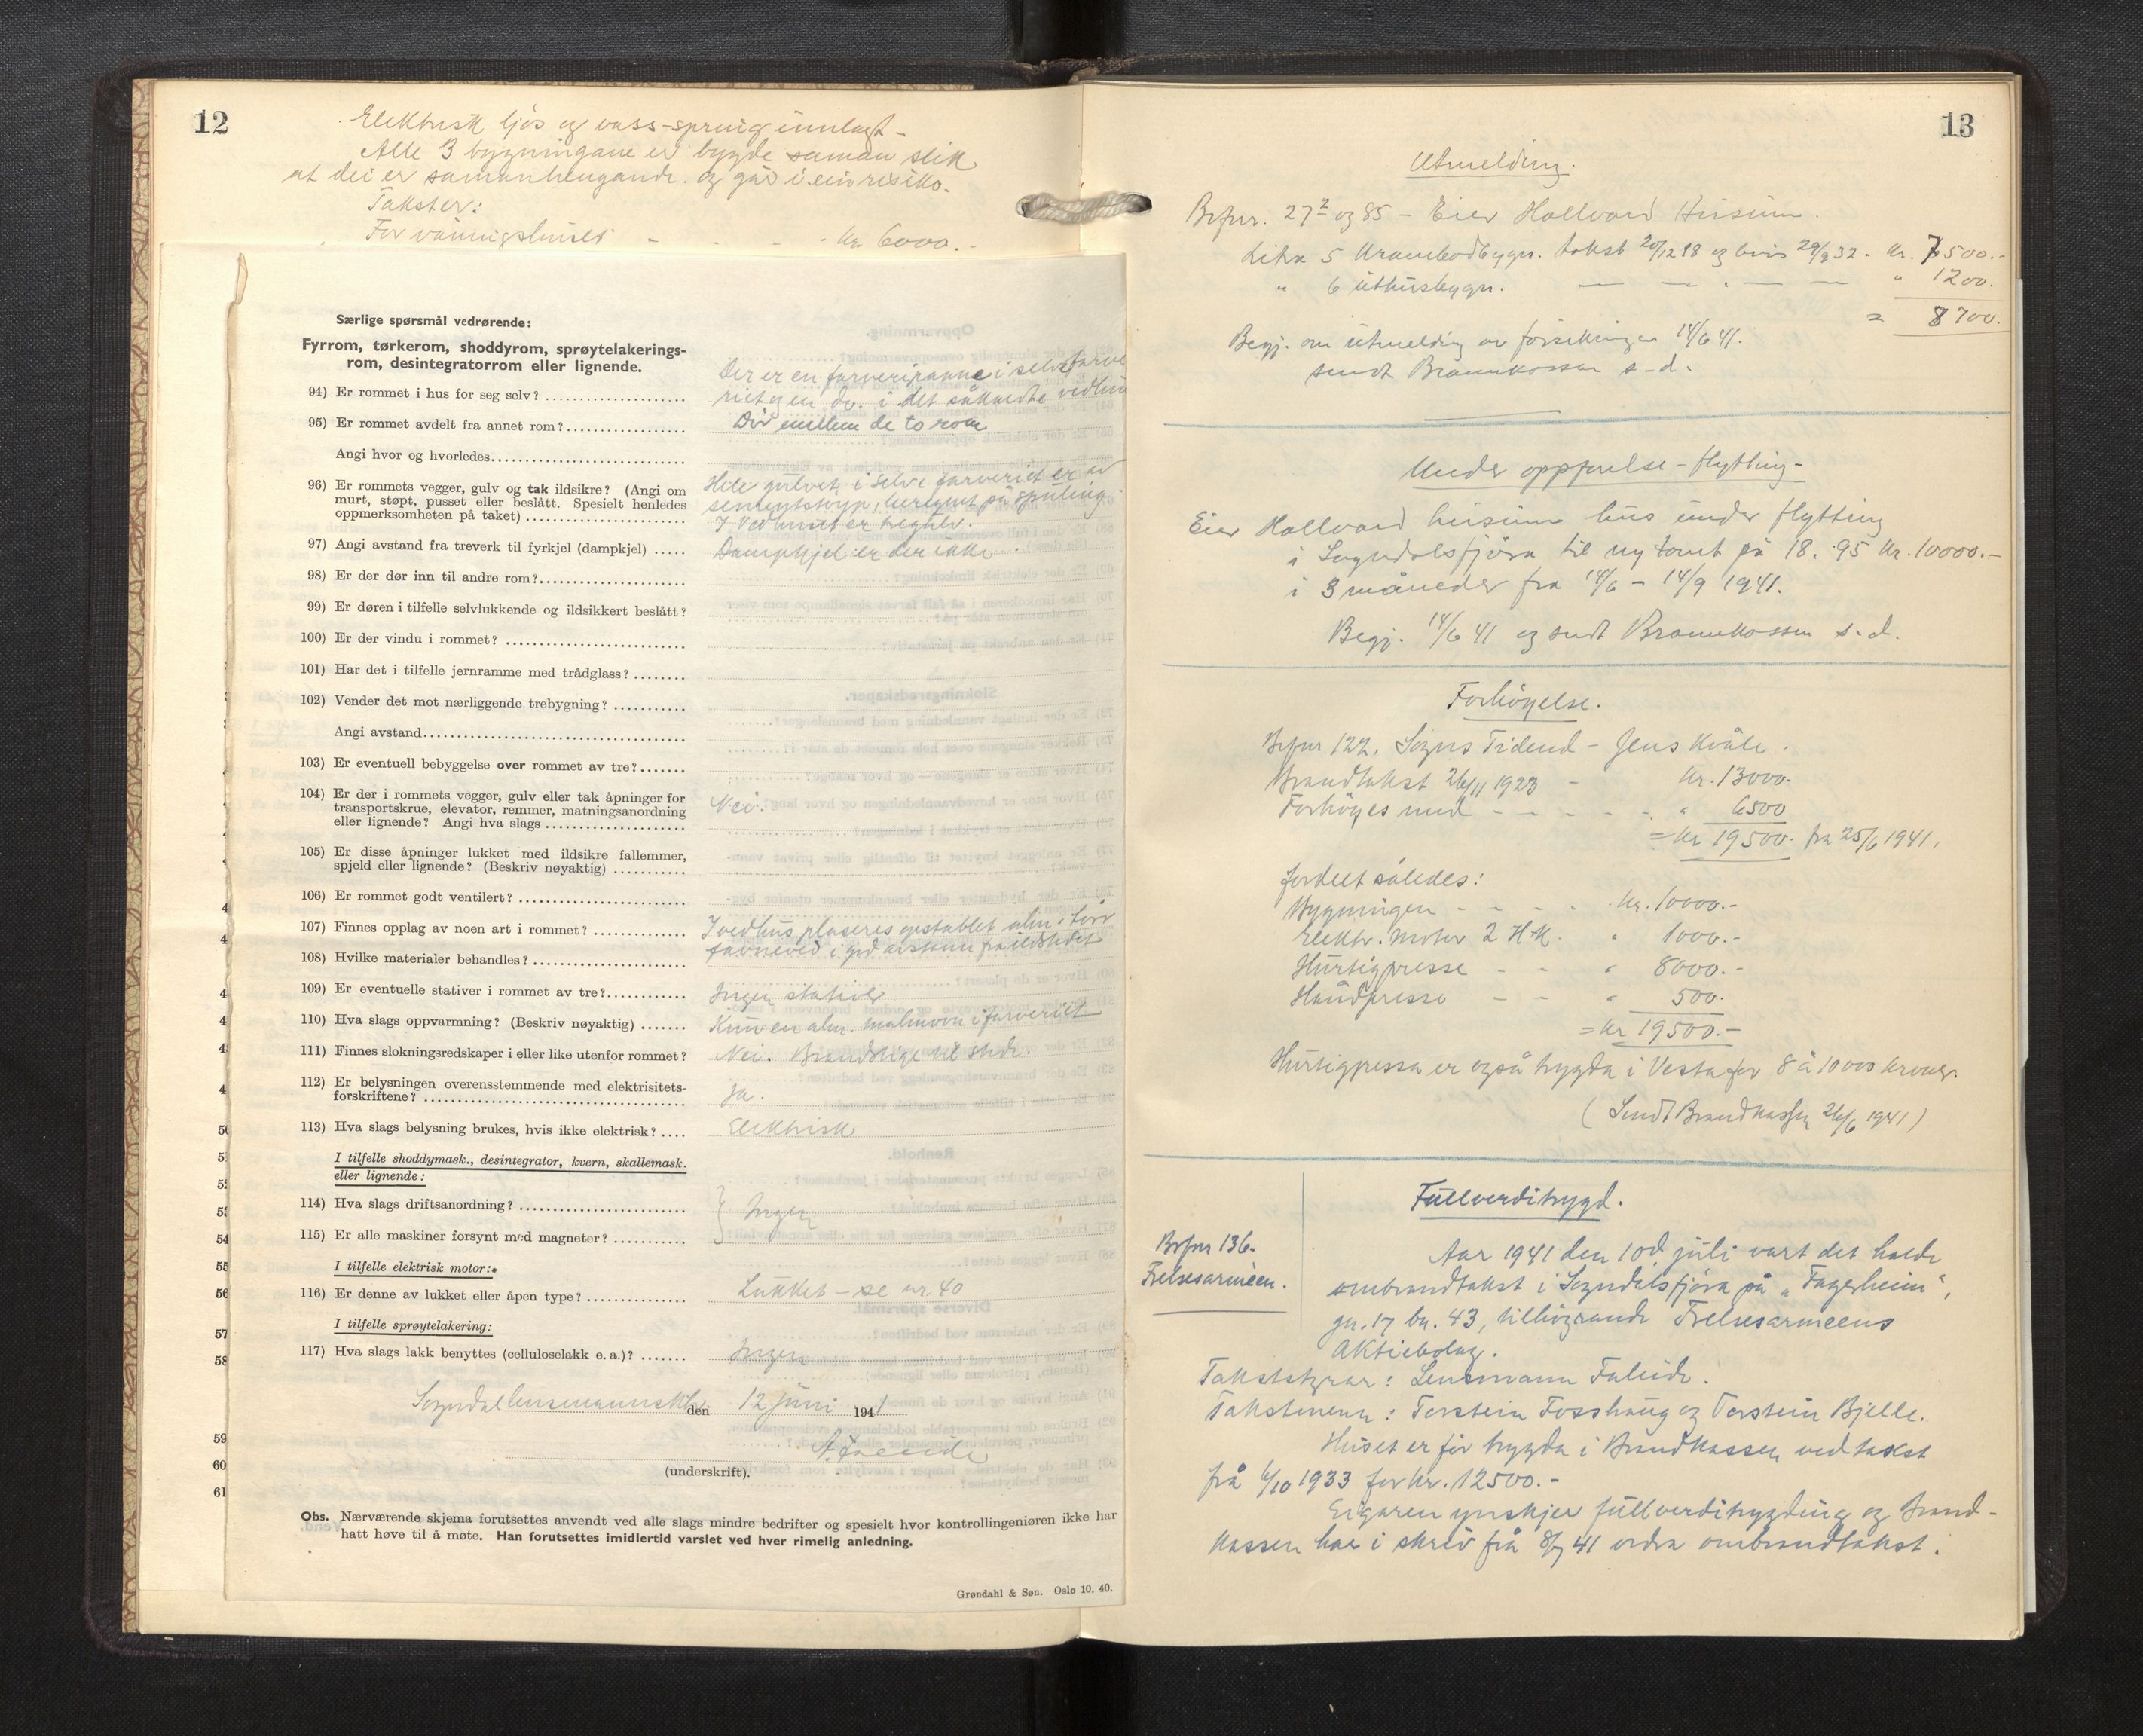 12
Elektrisk ljos og vass-spring innlagt -
Alle 3 bygningane er bygde saman slik
at dei er samanhengande og går i ein risiko.
Takster:
For våningshuset - - - - kr. 6000.-
Særlige spørsmål vedrørende:
Fyrrom, tørkerom, shoddyrom, sprøytelakerings-
rom, desintegratorrom eller lignende.
94) Er rommet i hus for seg selv? Der er en farveripanne i selve farve
riet og en do. i det såkaldte vedhus
95) Er rommet avdelt fra annet rom? Dör mellem de to rom
Angi hvor og hvorledes
96) Er rommets vegger, gulv og tak ildsikre? (Angi om
murt, støpt, pusset eller beslått. Spesielt henledes
oppmerksomheten på taket)
Hele gulvet i selve farveriet er av
sementstöyp, beregnet på spuling.
I vedhuset er tregulv.
97) Angi avstand fra treverk til fyrkjel (dampkjel) Dampkjel er der ikke.
98) Er der dør inn til andre rom?
99) Er døren i tilfelle selvlukkende og ildsikkert beslått?
100) Er der vindu i rommet?
101) Har det i tilfelle jernramme med trådglass?
102) Vender det mot nærliggende trebygning?
Angi avstand
103) Er eventuell bebyggelse over rommet av tre?
104) Er der i rommets vegger, gulv eller tak åpninger for
transportskrue, elevator, remmer, matningsanordning
eller lignende? Angi hva slags
Nei.
105) Er disse åpninger lukket med ildsikre fallemmer,
spjeld eller lignende? (Beskriv nøyaktig)
106) Er rommet godt ventilert?
107) Finnes opplag av noen art i rommet? I vedhus plaseres opstablet alm. törr
favneved i god avstann fra ildstedet
108) Hvilke materialer behandles?
109) Er eventuelle stativer i rommet av tre? Ingen stativer
110) Hva slags oppvarmning? (Beskriv nøyaktig) Kun en alm. malmovn i farveriet
111) Finnes slokningsredskaper i eller like utenfor rommet? Nei. Brandstige til stede.
112) Er belysningen overensstemmende med elektrisitets-
forskriftene? Ja.
113) Hva slags belysning brukes, hvis ikke elektrisk? Elektrisk
I tilfelle shoddymask., desintegrator, kvern, skallemask.
eller lignende:
114) Hva slags driftsanordning? Ingen
115) Er alle maskiner forsynt med magneter?
I tilfelle elektrisk motor:
116) Er denne av lukket eller åpen type? Lukket - se nr. 40
I tilfelle sprøytelakering:
117) Hva slags lakk benyttes (celluloselakk e. a.)? Ingen
Sogndal lensmannsktr. den 12 juni 1941
A. Faleide
(underskrift).
Obs. Nærværende skjema forutsettes anvendt ved alle slags mindre bedrifter og spesielt hvor kontrollingeniøren ikke har
hatt høve til å møte. Han forutsettes imidlertid varslet ved hver rimelig anledning.
Grøndahl & Søn. Oslo 10. 40.
13
Utmelding.
Brfnr. 27² og 85 - Eier Hallvard Husum.
Litra 5 Krambodbygn. takst 20/12 18 og bevis 29/8 32 - kr. 7500.-
" 6 uthusbygn. — — " — — " 1200.
= 8700.
Begj. om utmelding av forsikringen 14/6 41.
sendt Brannkassen s.d.
Under oppförelse - flytting -
Eier Hallvard Husum hus under flytting
i Sogndalsfjöra til ny tomt på 18. 95 kr. 10000.-
i 3 måneder fra 14/6 - 14/9 1941.
Begj. 14/6 41 og sendt Brannkassen s.d.
Forhögelse.
Brfnr 122. Sogns Tidend - Jens Kvåle.
Brandtakst 26/11 1923 - kr. 13000.-
Forhöges med - - - - " 6500
= kr 19500.- fra 25/6 1941.
fordelt således:
Bygningen - - - - kr. 10000.-
Elektr. motor 2 HK. " 1000.-
Hurtigpresse - - " 8000.-
Handpresse - - " 500.-
= kr 19500.-
Hurtigpressa er også trygda i Vesta for 8 à 10000 kroner.
(Sendt Brandkassen 26/6 1941)
Fullverditrygd.
Brfnr 136.
Frelsesarmeen.
Aar 1941 den 10d. juli vart det halde
ombrandtakst i Sogndalsfjöra på „Fagerheim",
gn. 17 bn. 43, tilhöyrande Frelsesarmeens
Aktiebolag.
Takststyrar: Lensmann Faleide.
Takstmenn: Torstein Fosshaug og Torstein Bjelle.
Huset er för trygda i Brandkassen ved takst
frå 6/10 1933 for kr. 12500.-
Eigaren ynskjer fullverditrygding og Brand-
kassen har i skriv frå 8/7 41 ordra ombrandtakst.